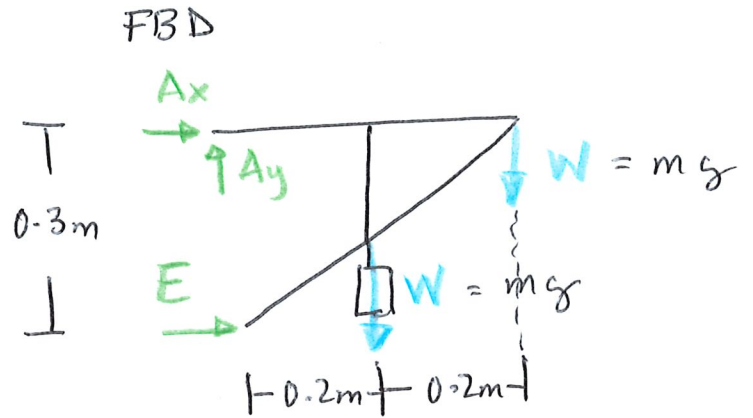 FBD
Ax
Ay
W = mg
0.3m
E
W = mg
0.2m
0.2m